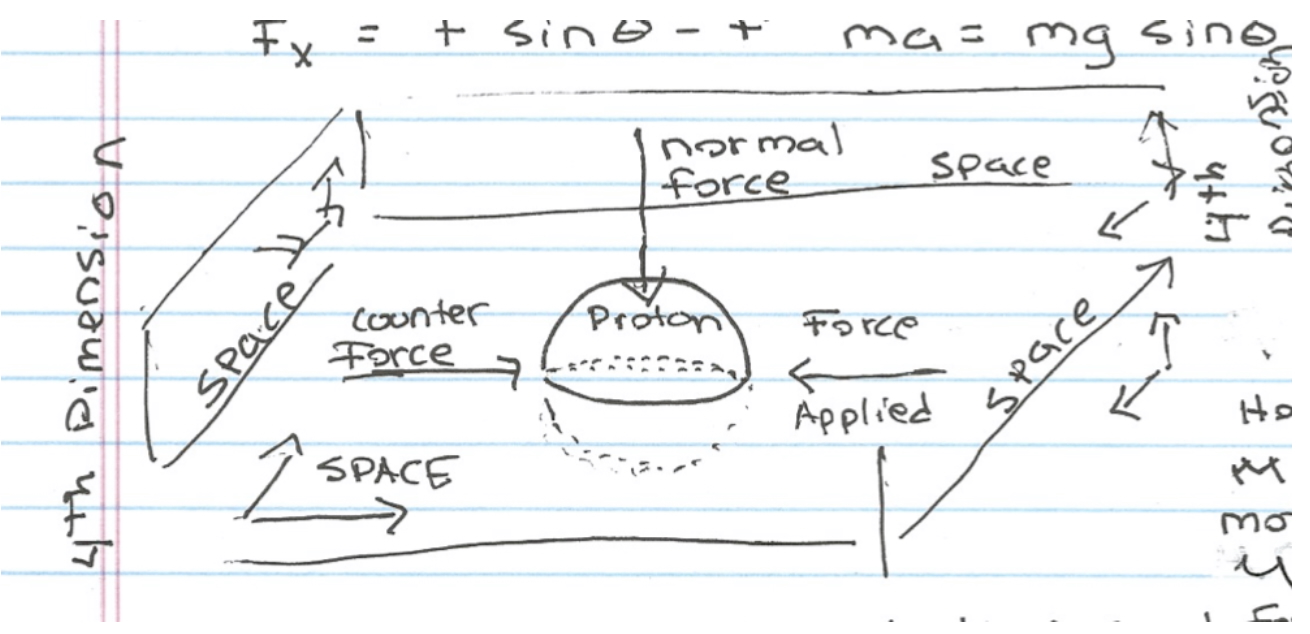 Fx = + sinθ - + ma = mg sinθ
4Th Dimension
normal
force
space
4th
Dimension
space
counter
Force
Proton
Force
Applied
space
SPACE
Ho
M
mo